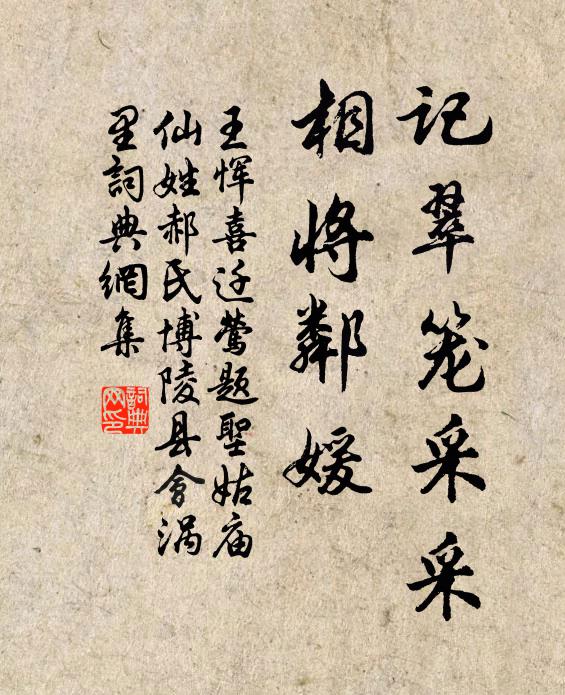 记翠笼采采
相将鄰媛
王恽喜迁莺题聖姑庙
仙姓郝氏博陵县會涡
里詞典網集
詞典
网印